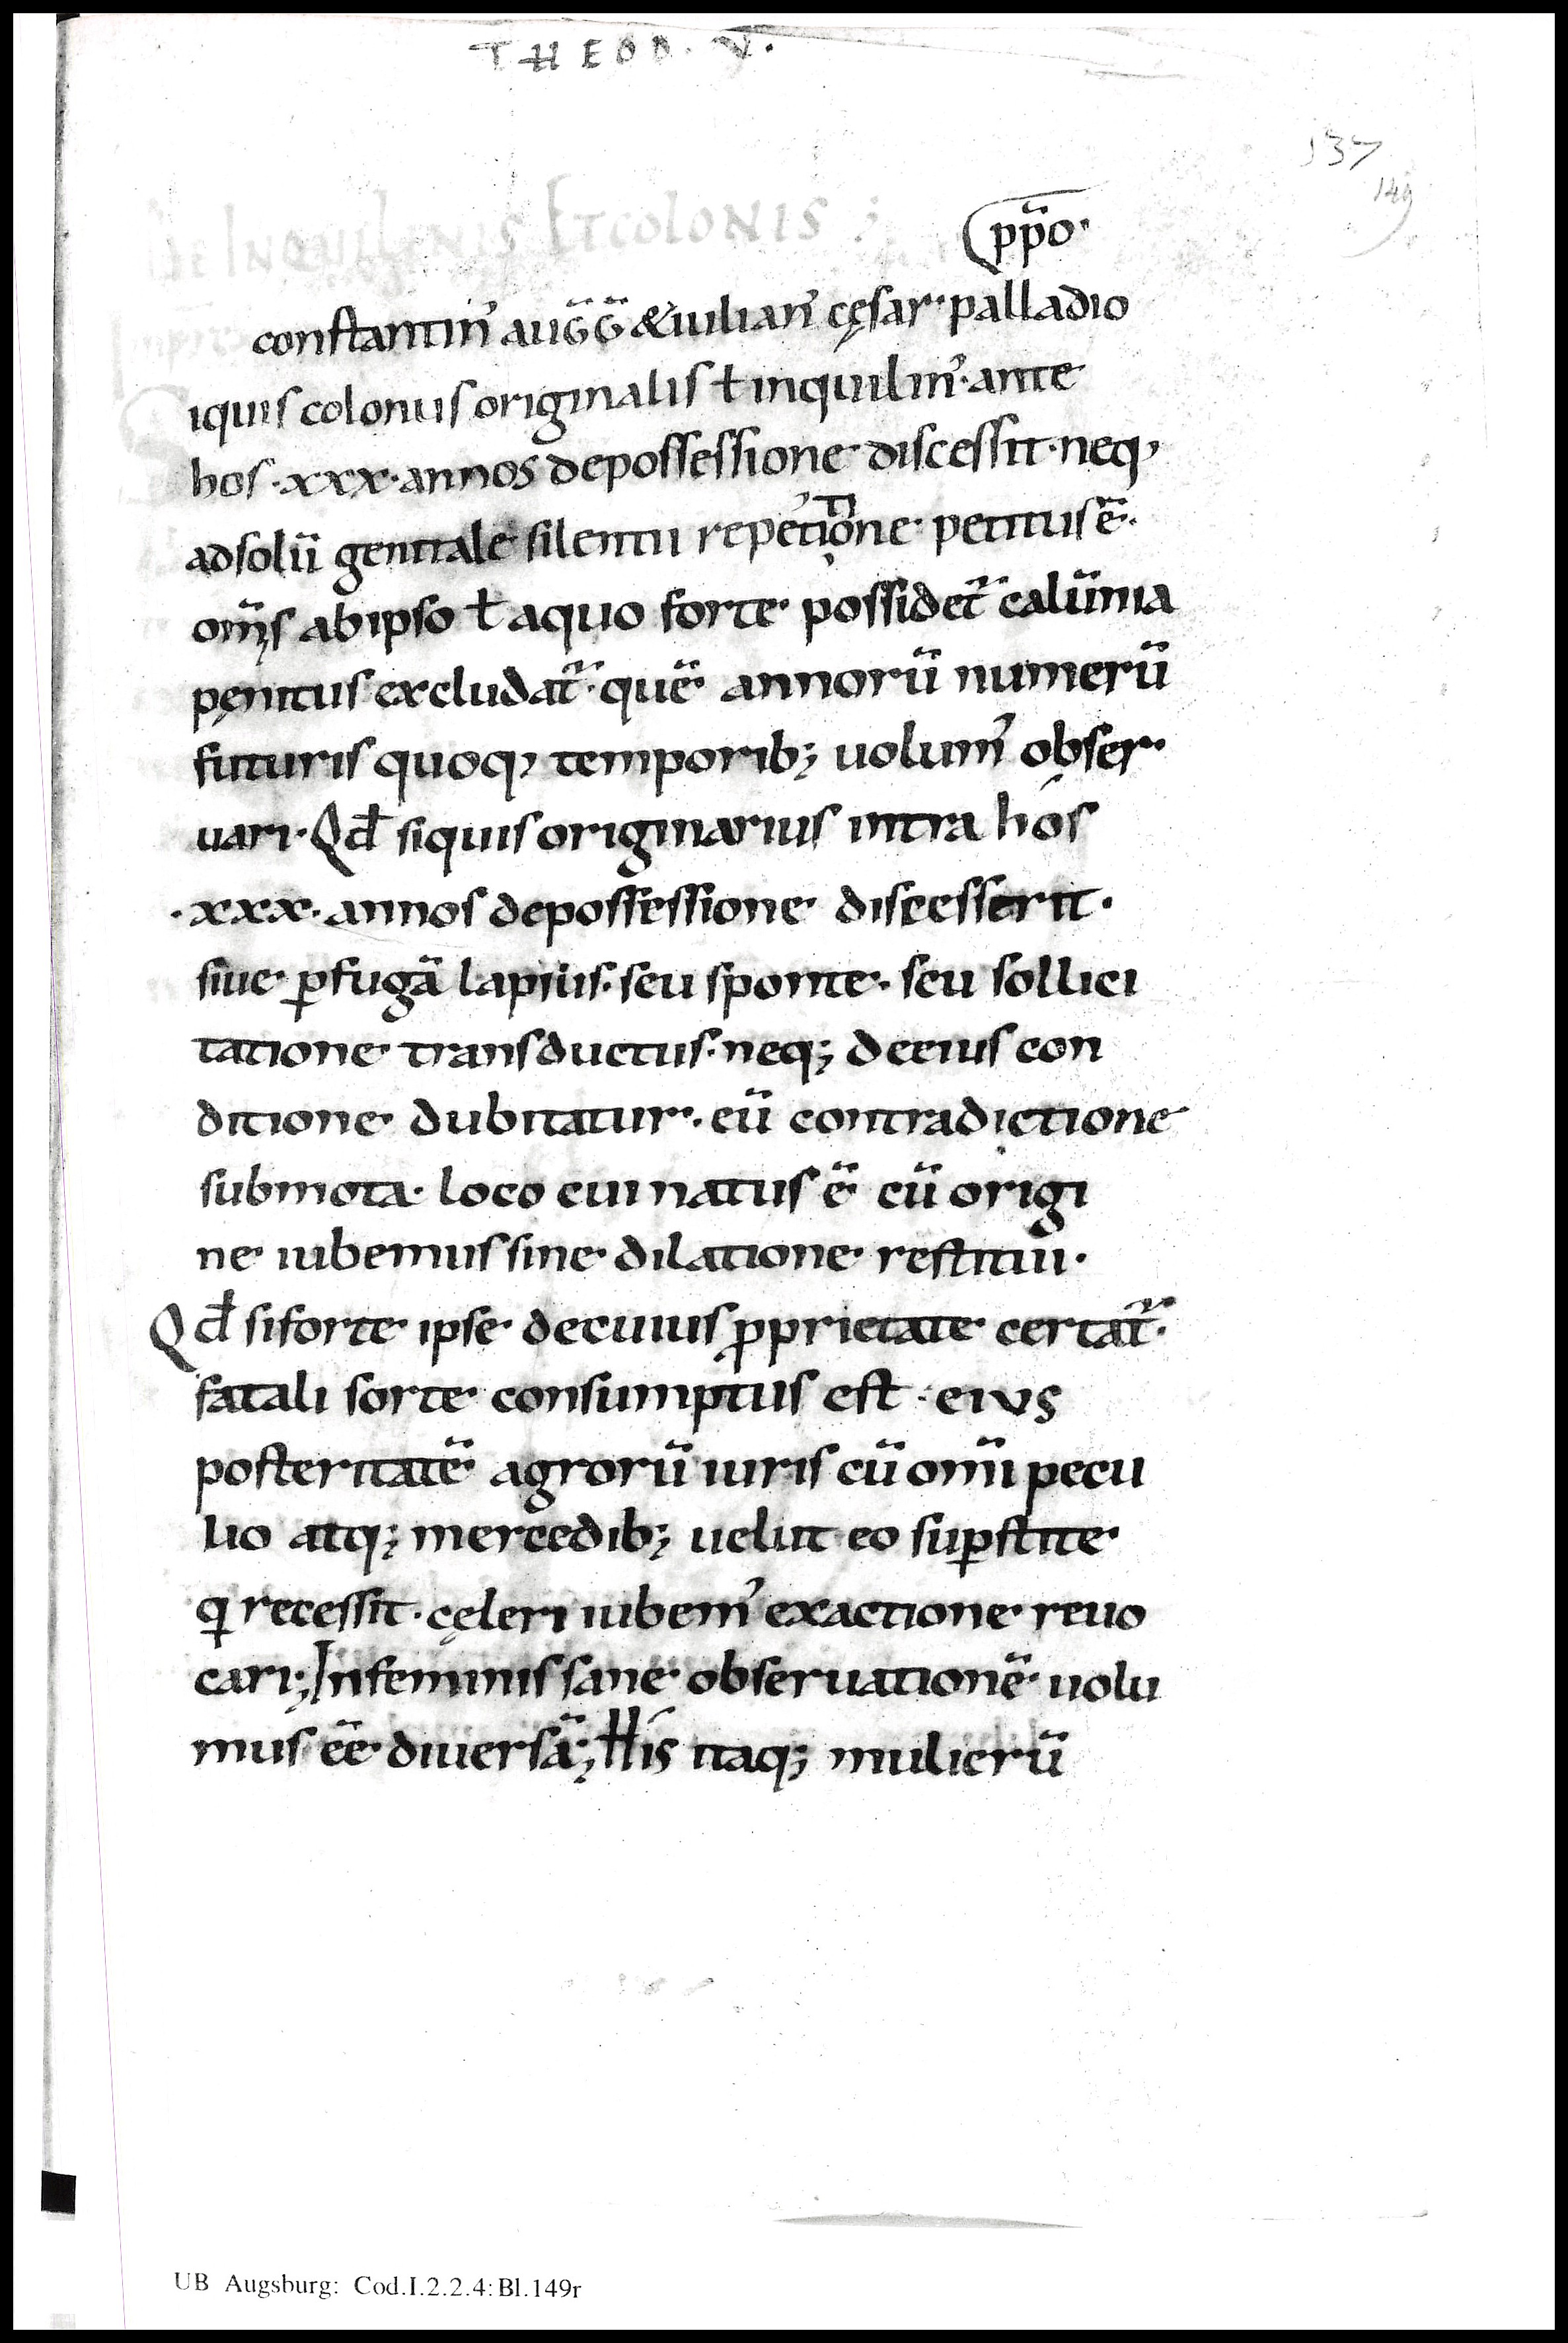 THEOD. V.
137
149
De INQUILINIS ET COLONIS ;
pp̄o·
Impr̄s constantin᾿ auḡḡ & iulian᾿ cęsar· palladio
Siquis colonus originalis ł inquilin᾿· ante
hos · xxx · annos depossessione discessit · neq,
adsolū gentiale silentii repetitione petitus ē·
om̄s ab ipso ł aquo forte possidet̄ calūnia
pęnitus excludat̄· quē annorū numerū
futuris quoq, temporib; uolum᾿ obser
uari · Qđ siquis originarius intra hós
· xxx · annos depossessione discesserit ·
siue ꝑfugā lapsus · seu sponte · seu sollici
tatione transductus · neq; deeius con
ditione dubitatur · eū contradictione
submota · loco cui natus ē cū origi
ne iubemus sine dilatione restitui ·
Qđ siforte ipse decuius ꝓprietate certat̄·
fatali sorte consumptus est · eius
posteritatē agrorū iuris cū om̄i pecu
lio atq; mercedib; uelut eo suꝑstite
q̨ recessit · cęleri iubem᾿ exactione reuo
cari; Infeminis sane obseruationē uolu
mus ēē diuersā; His itaq; mulierū
UB Augsburg: Cod.I.2.2.4: Bl.149r